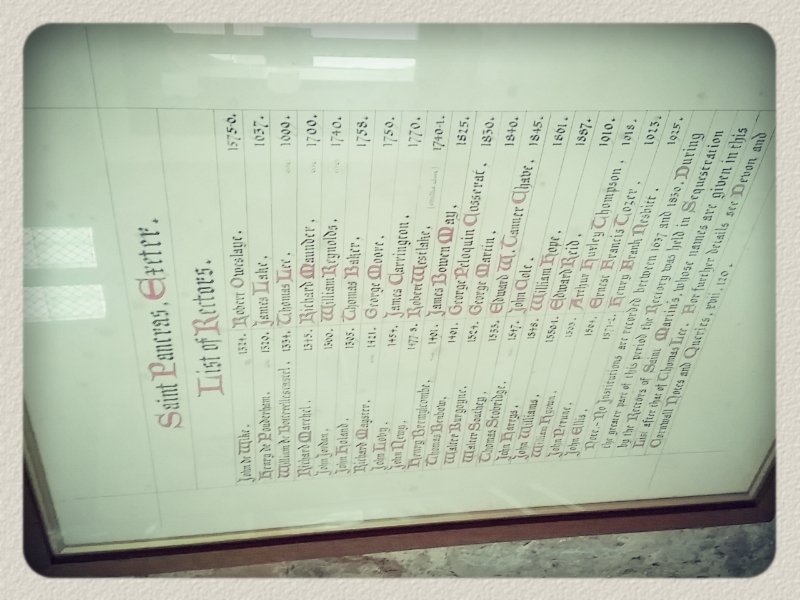 Saint Pancras, Exeter.
List of Rectors.
John de Wilke. 1324. Robert Oweslaye. 1575-6.
Henry de Pouderham. 1329. James Lake.
William de 1334. Thomas Lee.
Richard Marchel. Richard Maunder. 1700.
John Jordan. 1390. William Reynolds. 1740.
John Holand. 1395. Thomas Baker. 1758.
Richard Mayster. 1421. George Moore. 1759.
John Loby. 1454. James Carrington. 1770.
John Newy. 1477-8. Robert Westlake.
Henry 1491. James Bowen May. 1825.
Thomas Benbow. 1491. George Peloquin Cosserat. 1830.
Walter Burgoyne. 1524. George Martin. 1840.
Walter Southey. 1533. Edward W. Tanner Chave. 1845.
Thomas Stobridge. 1547. John Cole. 1861.
John Harrys. 1548. William Hope. 1887.
John Williams. Edward Reid. 1910.
William Arthur Hurley Thompson. 1918.
John Ernest Francis Tozer. 1923.
John Ellis. Henry Frank Nesbitt. 1925.
Note.- No Institutions are recorded between 1637 and 1830. During
the greater part of this period the Rectory was held in Sequestration
by the Rectors of Saint Martin's, whose names are given in this
List after that of Thomas Lee. For further details see Devon and
Cornwall Notes and Queries,